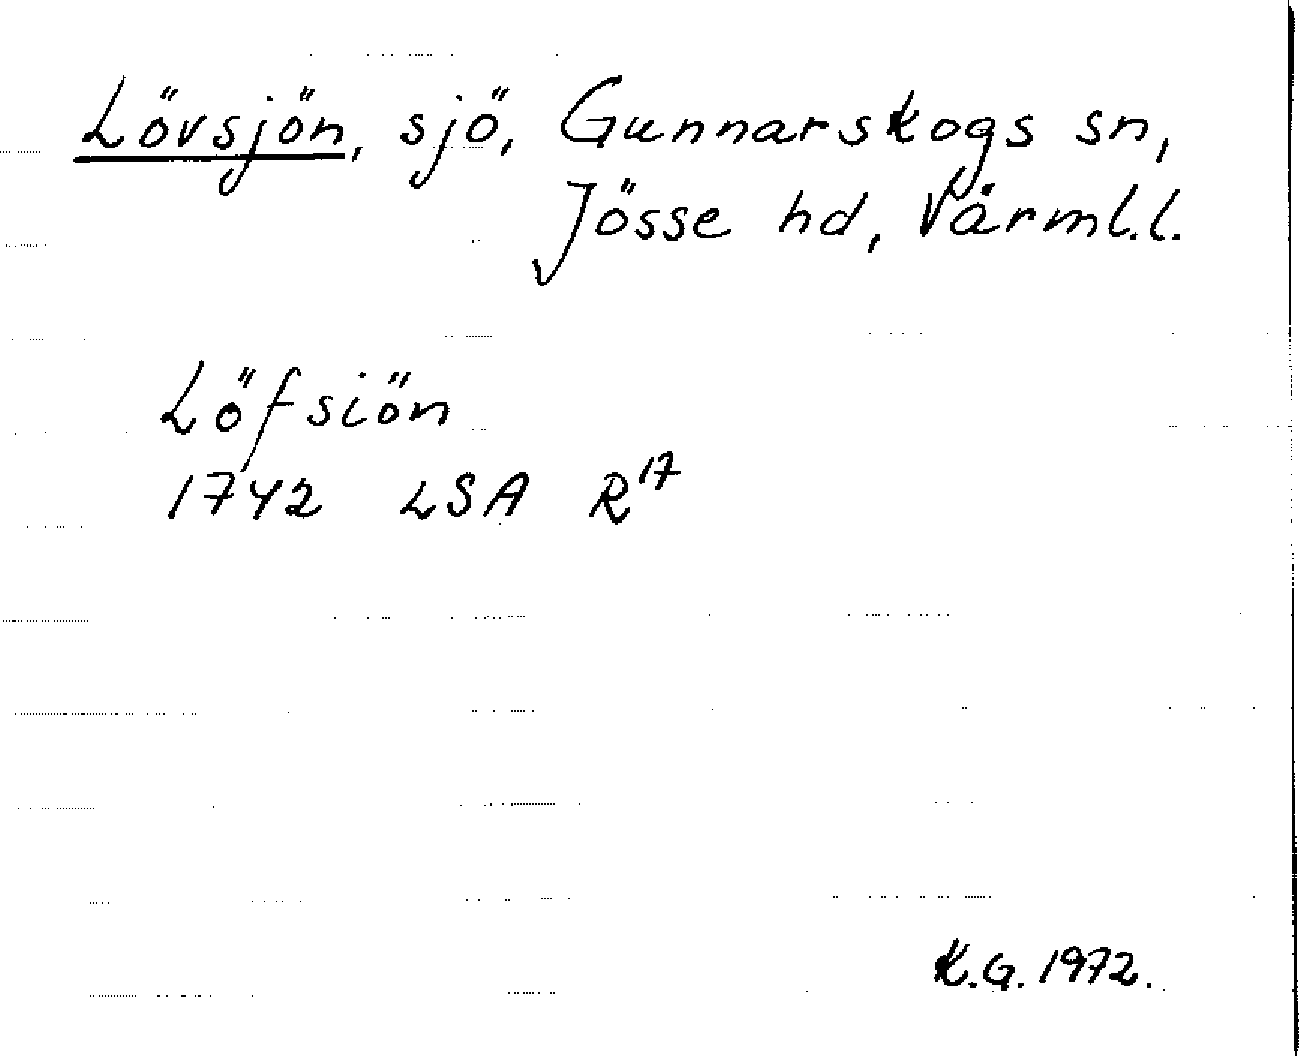 Lövsjön, sjö, Gunnarskogs sn,
Jösse hd, Värml.l.
Löfsiön
1742 LSA R17
K.G. 1972.